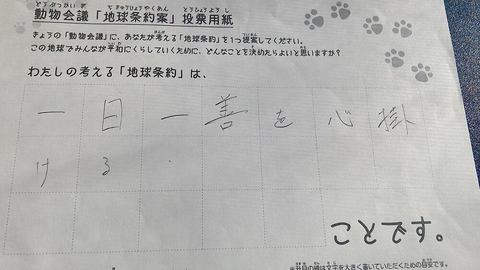 動物会議「地球条約案」投票用紙
きょうの「動物会議」に、あなたが考える「地球条約」を1つ提案してください。
この地球でみんなが平和にくらしていくために、どんなことを決めたらよいと思いますか?
わたしの考える「地球条約」は、
一日一善を心掛
ける.
ことです。
※升目の線は文字を大きく書いていただくための目安です。